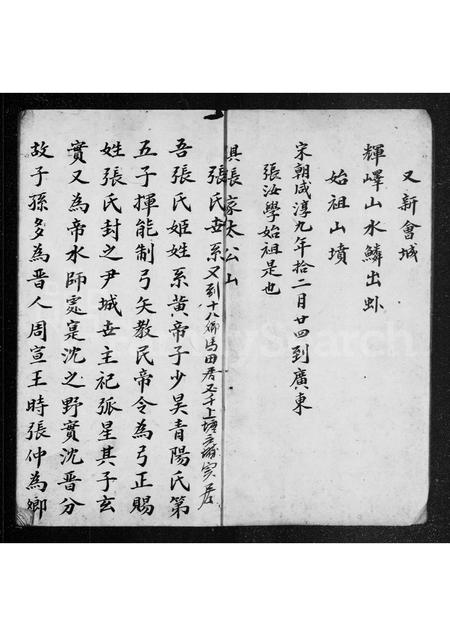 又新會城
輝嶧山水鱗出卦
始祖山墳
宋朝咸淳九年拾二月廿四到廣東
張汝學始祖是也
俱張家太公山
張氏世系又到十八鄉馬田
吾張氏姬姓系黃帝子少昊青陽氏第
五子揮能制弓矢教民帝令為弓正賜
姓張氏封之尹城世主祀張星其子玄
實又為帝水師處寔沈之野實沈晋分
故子孫多為晋人周宣王時張仲為卿